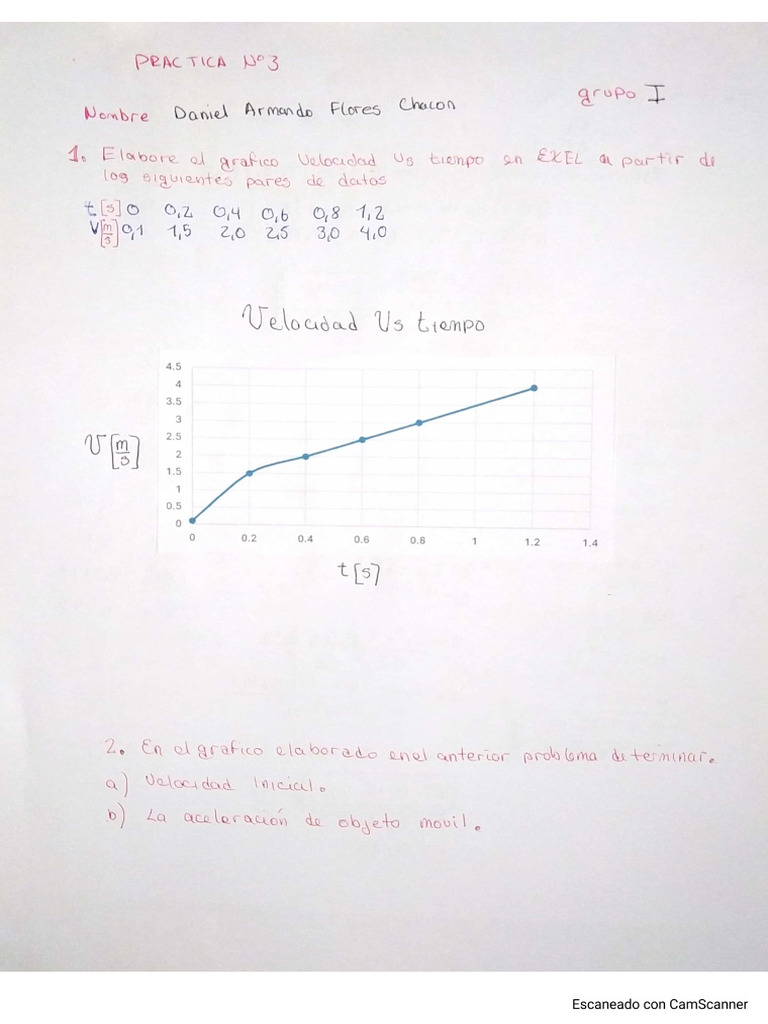 PRACTICA Nº3
grupo I
Nombre Daniel Armando Flores Chacon
1. Elabore el grafico Velocidad Vs tiempo en EXEL a partir de
los siguientes pares de datos
t[s] 0 0,2 0,4 0,6 0,8 1,2
V[m/s] 0,1 1,5 2,0 2,5 3,0 4,0
Velocidad Vs tiempo
4.5
4
3.5
3
2.5
2
1.5
1
0.5
0
V[m/s]
0 0.2 0.4 0.6 0.8 1 1.2 1.4
t[s]
2. En el grafico elaborado enel anterior problema determinar.
a) Velocidad Inicial.
b) La aceleración de objeto movil.
Escaneado con CamScanner